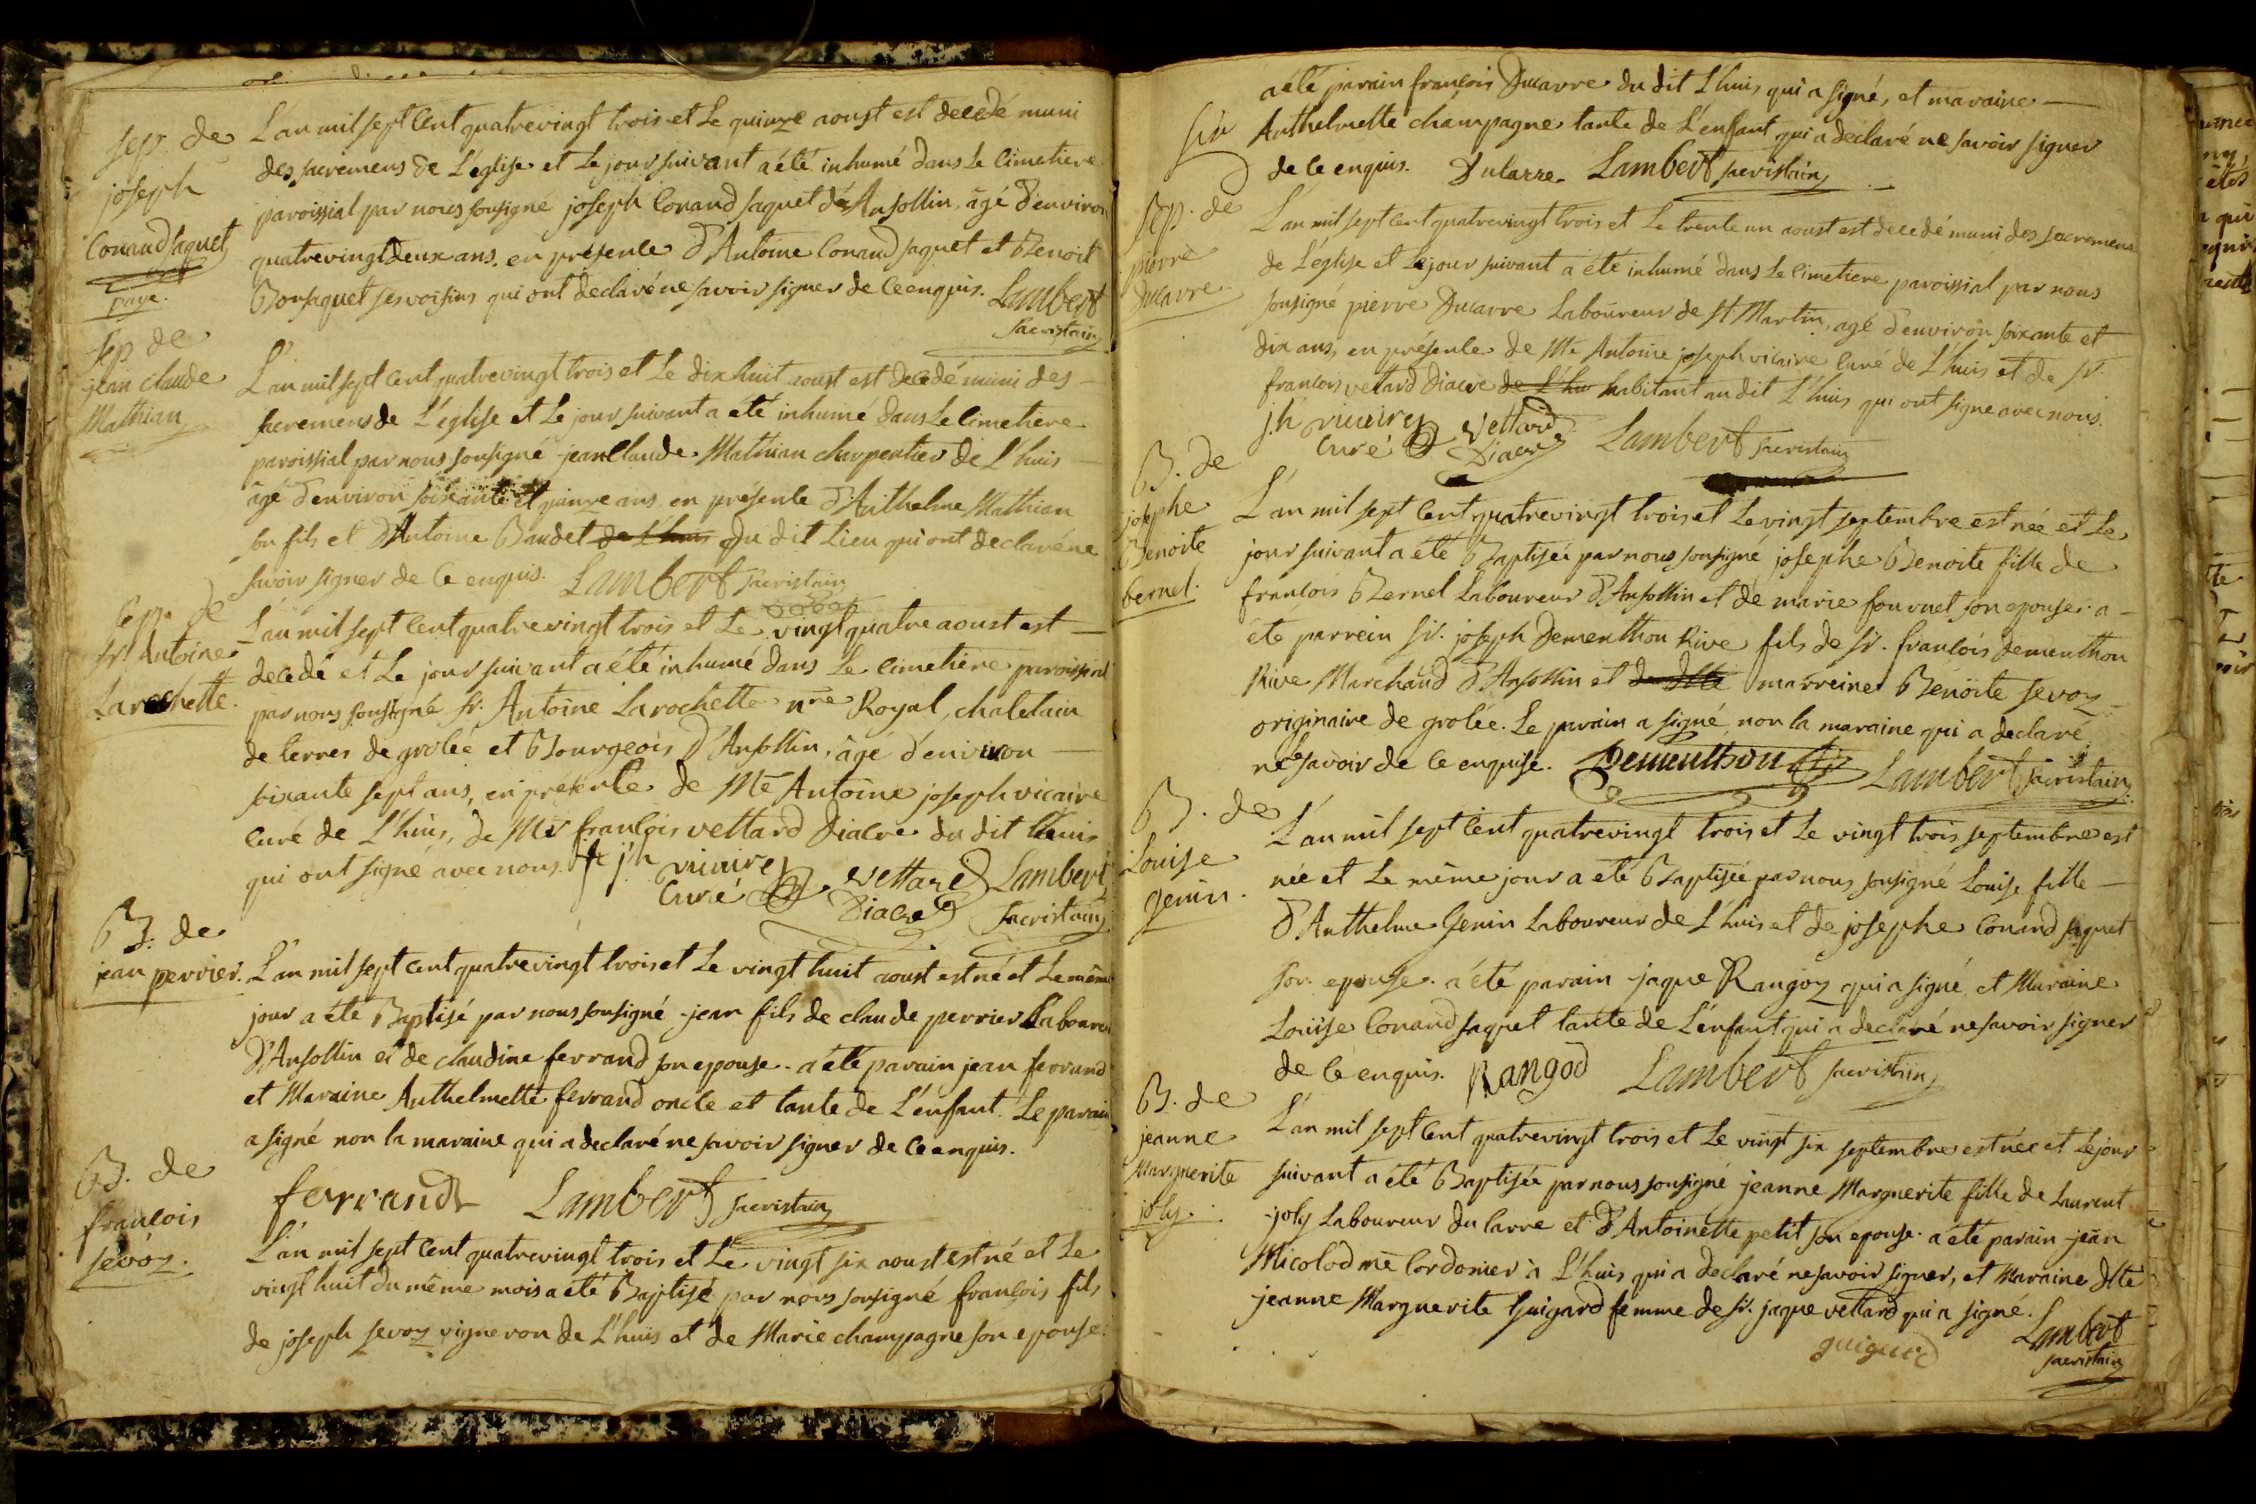 sep. de
joseph
Conand saquet
paye.
L'an mil sept Cent quatrevingt trois et Le quinze aoust est decedé muni
des sacremens de L'église et Le jour suivant a été inhumé dans Le Cimetiere
paroissial par nous sousigné joseph Conand saquet d'Ansollin, âgé d'environ
quatrevingt deux ans. en présence d'Antoine Conand saquet et Benoit
Bonsaquet ses voisins qui ont declaré ne savoir signer de ce enquis. Lambert
sacristain
sep. de
jean claude
Mathian
L'an mil sept Cent quatrevingt trois et Le dix huit aoust est decedé muni des
sacremens de L'église et Le jour suivant a été inhumé dans Le Cimetiere
paroissial par nous sousigné jean Claude Mathian charpentier de L'huis
âgé d'environ soixante et quinze ans en présence d'Anthelme Mathian
son fils et d'Antoine Baudet de L'huis du dit Lieu qui ont declaré ne
savoir signer de Ce enquis. Lambert sacristain
sep. de
sr. Antoine
Larochette.
L'an mil sept Cent quatrevingt trois et Le vingt quatre aoust est
decedé et Le jour suivant a été inhumé dans Le Cimetiere paroissial
par nous sousigné sr. Antoine Larochette nre Royal, chatelain
de terres de grolée et Bourgeois d'Ansollin, âgé d'environ
soixante sept ans, en présence de Me Antoine joseph vicaire
curé de L'huis, de Mr françois vettard Diacre du dit L'huis
qui ont signé avec nous. jh vicaire
Curé vettard Diacre Lambert
sacristain
B. de
jean perrier.
L'an mil sept Cent quatrevingt trois et Le vingt huit aoust est né et Le même
jour a été Baptisé par nous sousigné jean fils de claude perrier Laboureur
d'Ansollin et de claudine ferrand son epouse. a été parain jean ferrand
et Maraine Anthelmette ferrand oncle et tante de L'enfant. Le parain
a signé non la maraine qui a declaré ne savoir signer de Ce enquis.
ferrand Lambert sacristain
B. de
françois
sevoz.
L'an mil sept Cent quatrevingt trois et Le vingt six aoust est né et Le
vingt huit du même mois a été Baptisé par nous sousigné françois fils
de joseph sevoz vigneron de L'huis et de Marie champagne son epouse.
a été parain françois Ducarre du dit L'huis, qui a signé, et maraine
Anthelmette champagne tante de L'enfant qui a declaré ne savoir signer
de Ce enquis. Ducarre Lambert sacristain
Sep. de
pierre
Ducarre.
L'an mil sept Cent quatrevingt trois et Le trente un aoust est decedé muni des sacremens
de L'église et Le jour suivant a été inhumé dans Le Cimetiere paroissial par nous
sousigné pierre Ducarre Laboureur de St Martin, agé d'environ soixante et
dix ans, en présence de Me Antoine joseph vicaire Curé de L'huis et de sr.
francois vettard Diacre de L'hu habitant au dit L'huis qui ont signé avec nous.
j.h vicaire
Curé vettard Diacre Lambert sacristain
B. de
josephe
Benoite
bernel.
L'an mil sept Cent quatrevingt trois et Le vingt septembre est née et Le
jour suivant a été Baptisée par nous sousigné josephe Benoite fille de
françois Bernel Laboureur d'Ansollin et de marie fournet son epouse. a
été parrein sr. joseph Dementhon Rive fils de sr. françois Dementhon
Rive Marchand d'Ansollin et de dlle marreine Benoite sevoz
originaire de grolée. Le parain a signé non la maraine qui a declaré
ne savoir de Ce enquise. Dementhon Lambert sacristain
B. de
Louise
genin.
L'an mil sept Cent quatrevingt trois et Le vingt trois septembre est
née et Le même jour a été Baptisée par nous sousigné Louise fille
d'Anthelme Genin Laboureur de L'huis et de josephe Conand saquet
son epouse. a été parain jaque Rangoz qui a signé, et Maraine
Louise Conand saquet tante de L'enfant qui a declaré ne savoir signer
de Ce enquis. Rangod Lambert sacristain
B. de
jeanne
Marguerite
joly.
L'an mil sept Cent quatrevingt trois et Le vingt six septembre est née et Le jour
suivant a été Baptisée par nous sousigné jeanne Marguerite fille de Laurent
joly Laboureur du Carre et d'Antoinette petit son epouse. a été parain jean
Micolod me Cordonier à L'huis qui a declaré ne savoir signer, et Maraine dlle
jeanne Marguerite Guigard femme de sr. jaque vettard qui a signé. Lambert
guigard sacristain